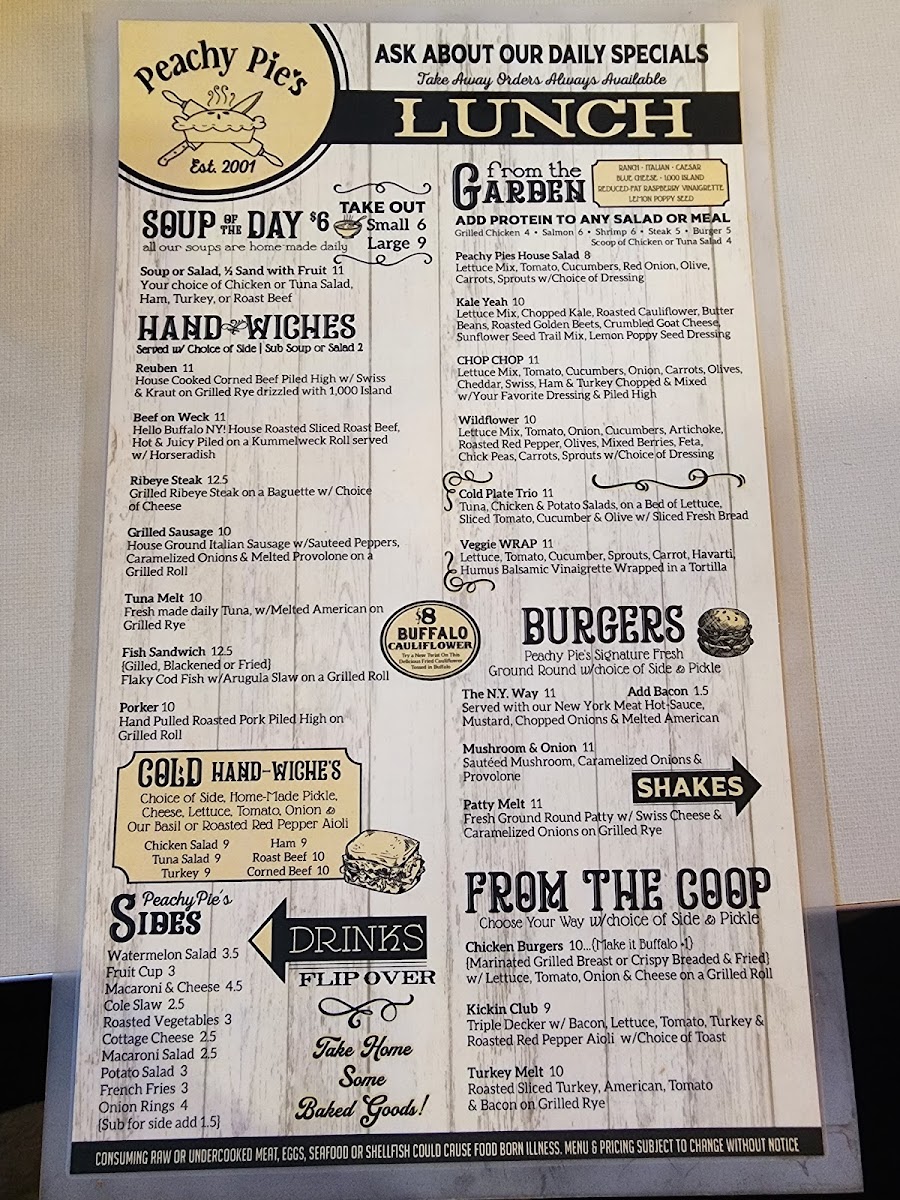 Peachy Pie's
Est. 2001
ASK ABOUT OUR DAILY SPECIALS
Take Away Orders Always Available
LUNCH
SOUP OF THE DAY $6
all our soups are home-made daily
TAKE OUT
Small 6
Large 9
Soup or Salad, ½ Sand with Fruit 11
Your choice of Chicken or Tuna Salad,
Ham, Turkey, or Roast Beef
HAND WICHES
Served w/ Choice of Side | Sub Soup or Salad 2
Reuben 11
House Cooked Corned Beef Piled High w/ Swiss
& Kraut on Grilled Rye drizzled with 1,000 Island
Beef on Weck 11
Hello Buffalo NY! House Roasted Sliced Roast Beef,
Hot & Juicy Piled on a Kummelweck Roll served
w/ Horseradish
Ribeye Steak 12.5
Grilled Ribeye Steak on a Baguette w/ Choice
of Cheese
Grilled Sausage 10
House Ground Italian Sausage w/Sauteed Peppers,
Caramelized Onions & Melted Provolone on a
Grilled Roll
Tuna Melt 10
Fresh made daily Tuna, w/Melted American on
Grilled Rye
Fish Sandwich 12.5
{Gilled, Blackened or Fried}
Flaky Cod Fish w/Arugula Slaw on a Grilled Roll
Porker 10
Hand Pulled Roasted Pork Piled High on
Grilled Roll
$8
BUFFALO
CAULIFLOWER
Try a New Twist On This
Delicious Fried Cauliflower
Tossed in Buffalo
COLD HAND-WICHE'S
Choice of Side, Home-Made Pickle,
Cheese, Lettuce, Tomato, Onion &
Our Basil or Roasted Red Pepper Aioli
Chicken Salad 9
Tuna Salad 9
Turkey 9
Ham 9
Roast Beef 10
Corned Beef 10
PeachyPie's
SIDES
Watermelon Salad 3.5
Fruit Cup 3
Macaroni & Cheese 4.5
Cole Slaw 2.5
Roasted Vegetables 3
Cottage Cheese 2.5
Macaroni Salad 2.5
Potato Salad 3
French Fries 3
Onion Rings 4
{Sub for side add 1.5}
DRINKS
FLIP OVER
Take Home
Some
Baked Goods!
from the
GARDEN
RANCH • ITALIAN • CAESAR
BLUE CHEESE • 1,000 ISLAND
REDUCED-FAT RASPBERRY VINAIGRETTE
LEMON POPPY SEED
ADD PROTEIN TO ANY SALAD OR MEAL
Grilled Chicken 4 • Salmon 6 • Shrimp 6 • Steak 5 • Burger 5
Scoop of Chicken or Tuna Salad 4
Peachy Pies House Salad 8
Lettuce Mix, Tomato, Cucumbers, Red Onion, Olive,
Carrots, Sprouts w/Choice of Dressing
Kale Yeah 10
Lettuce Mix, Chopped Kale, Roasted Cauliflower, Butter
Beans, Roasted Golden Beets, Crumbled Goat Cheese,
Sunflower Seed Trail Mix, Lemon Poppy Seed Dressing
CHOP CHOP 11
Lettuce Mix, Tomato, Cucumbers, Onion, Carrots, Olives,
Cheddar, Swiss, Ham & Turkey Chopped & Mixed
w/Your Favorite Dressing & Piled High
Wildflower 10
Lettuce Mix, Tomato, Onion, Cucumbers, Artichoke,
Roasted Red Pepper, Olives, Mixed Berries, Feta,
Chick Peas, Carrots, Sprouts w/Choice of Dressing
Cold Plate Trio 11
Tuna, Chicken & Potato Salads, on a Bed of Lettuce,
Sliced Tomato, Cucumber & Olive w/ Sliced Fresh Bread
Veggie WRAP 11
Lettuce, Tomato, Cucumber, Sprouts, Carrot, Havarti,
Humus Balsamic Vinaigrette Wrapped in a Tortilla
BURGERS
Peachy Pie's Signature Fresh
Ground Round w/choice of Side & Pickle
The N.Y. Way 11 Add Bacon 1.5
Served with our New York Meat Hot-Sauce,
Mustard, Chopped Onions & Melted American
Mushroom & Onion 11
Sautéed Mushroom, Caramelized Onions &
Provolone
SHAKES
Patty Melt 11
Fresh Ground Round Patty w/ Swiss Cheese &
Caramelized Onions on Grilled Rye
FROM THE COOP
Choose Your Way w/choice of Side & Pickle
Chicken Burgers 10...{Make it Buffalo +1}
{Marinated Grilled Breast or Crispy Breaded & Fried}
w/ Lettuce, Tomato, Onion & Cheese on a Grilled Roll
Kickin Club 9
Triple Decker w/ Bacon, Lettuce, Tomato, Turkey &
Roasted Red Pepper Aioli w/Choice of Toast
Turkey Melt 10
Roasted Sliced Turkey, American, Tomato
& Bacon on Grilled Rye
CONSUMING RAW OR UNDERCOOKED MEAT, EGGS, SEAFOOD OR SHELLFISH COULD CAUSE FOOD BORN ILLNESS. MENU & PRICING SUBJECT TO CHANGE WITHOUT NOTICE